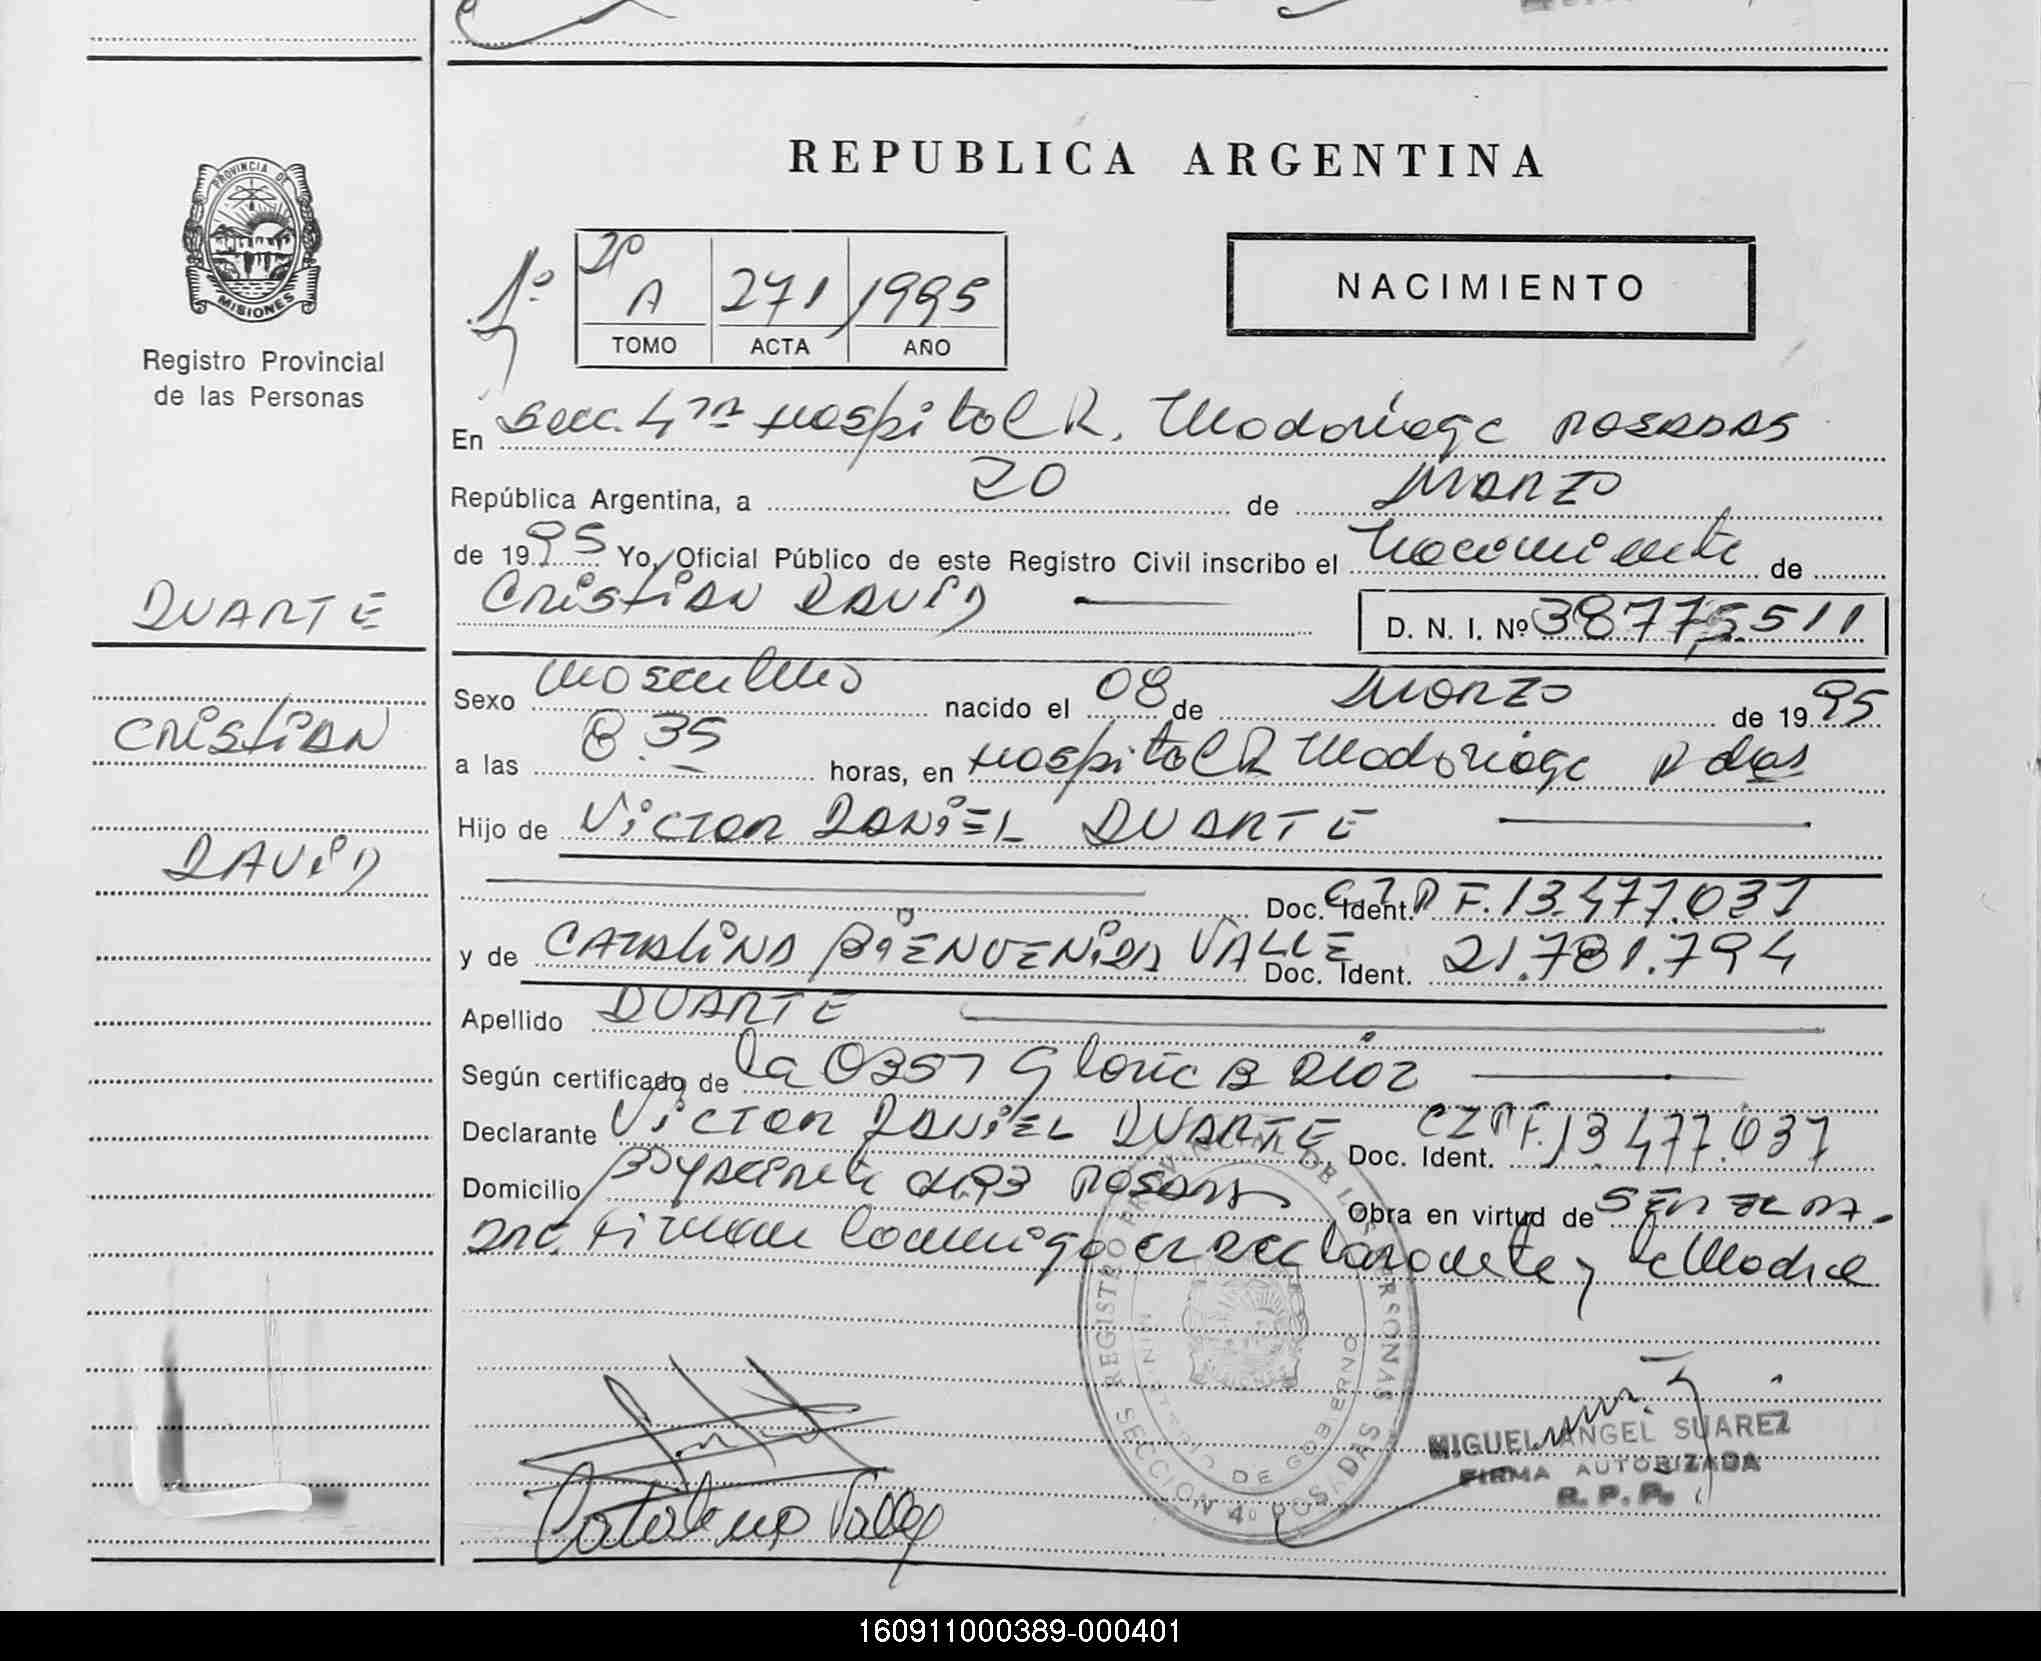 PROVINCIA DE
MISIONES
Registro Provincial
de las Personas
DUARTE
CRISTIAN
DAVID
REPUBLICA ARGENTINA
1º
2º
A 271 1995
TOMO ACTA AÑO
NACIMIENTO
En Secc. 4ta Hospital R. Madariaga POSADAS
República Argentina, a 20 de MARZO
de 1995 Yo, Oficial Público de este Registro Civil inscribo el Nacimiento de
CRISTIAN DAVID
D. N. I. Nº 38.775.511
Sexo Masculino nacido el 08 de MARZO de 1995
a las 8.35 horas, en Hospital R Madariaga Pdas
Hijo de VICTOR DANIEL DUARTE
Doc. Ident. CIPF. 13.477.037
y de CATALINA BIENVENIDA VALLE Doc. Ident. 21.781.794
Apellido DUARTE
Según certificado de la Obst Gloria B Diaz
Declarante VICTOR DANIEL DUARTE Doc. Ident. CIPF. 13.477.037
Domicilio POSADAS Obra en virtud de SER EL PA-
DRE. Firman conmigo el Declarante y la Madre
REGISTRO PROVINCIAL DE LAS PERSONAS
MINISTERIO DE GOBIERNO
SECCION 4º POSADAS
Catalina Valle
MIGUEL ANGEL SUAREZ
FIRMA AUTORIZADA
R. P. P.
160911000389-000401